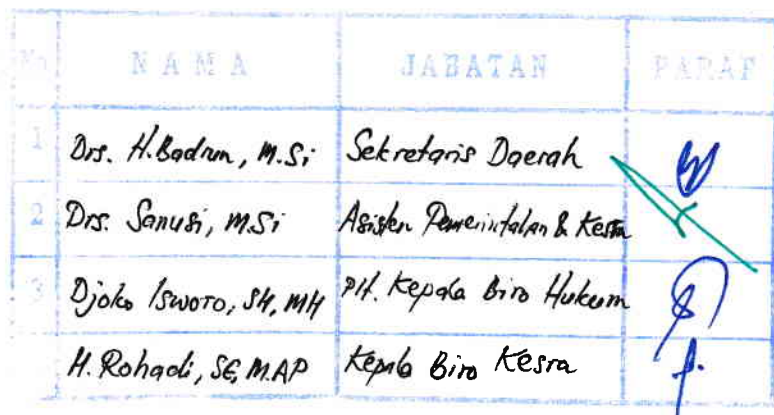 No NAMA JABATAN PARAF
1 Drs. H. Badrun, M.Si Sekretaris Daerah
2 Drs. Sanusi, M.Si Asisten Pemerintahan & Kesra
3 Djoko Isworo, SH, MH Plt. Kepala Biro Hukum
H. Rohadi, SE, M.AP Kepala Biro Kesra